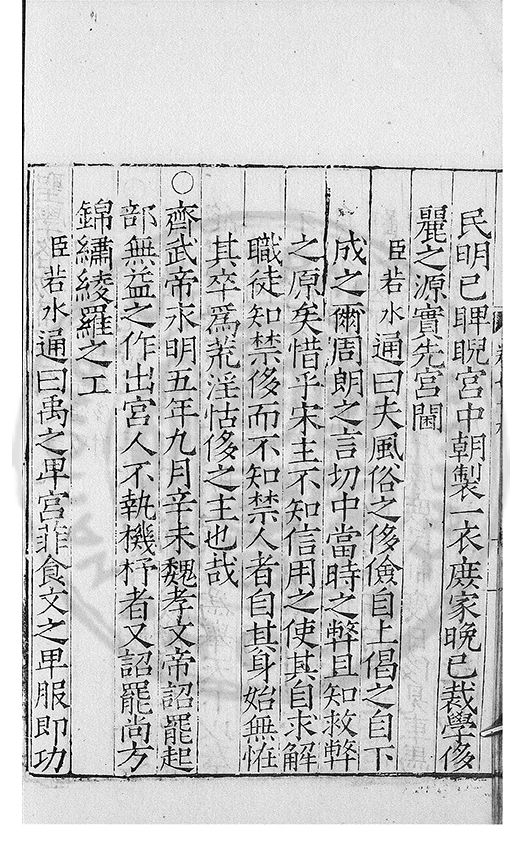 民明已睥睨宮中朝製一衣庶家晚已裁學侈
麗之源實先宮閫
臣若水通曰夫風俗之侈儉自上倡之自下
成之爾周朗之言切中當時之弊且知救弊
之原矣惜乎宋主不知信用之使其自求解
職徒知禁侈而不知禁人者自其身始無恠
其卒爲荒淫怙侈之主也哉
○齊武帝永明五年九月辛未魏孝文帝詔罷起
部無益之作出宮人不執機杼者又詔罷尚方
錦繡綾羅之工
臣若水通曰禹之卑宮菲食文之卑服即功